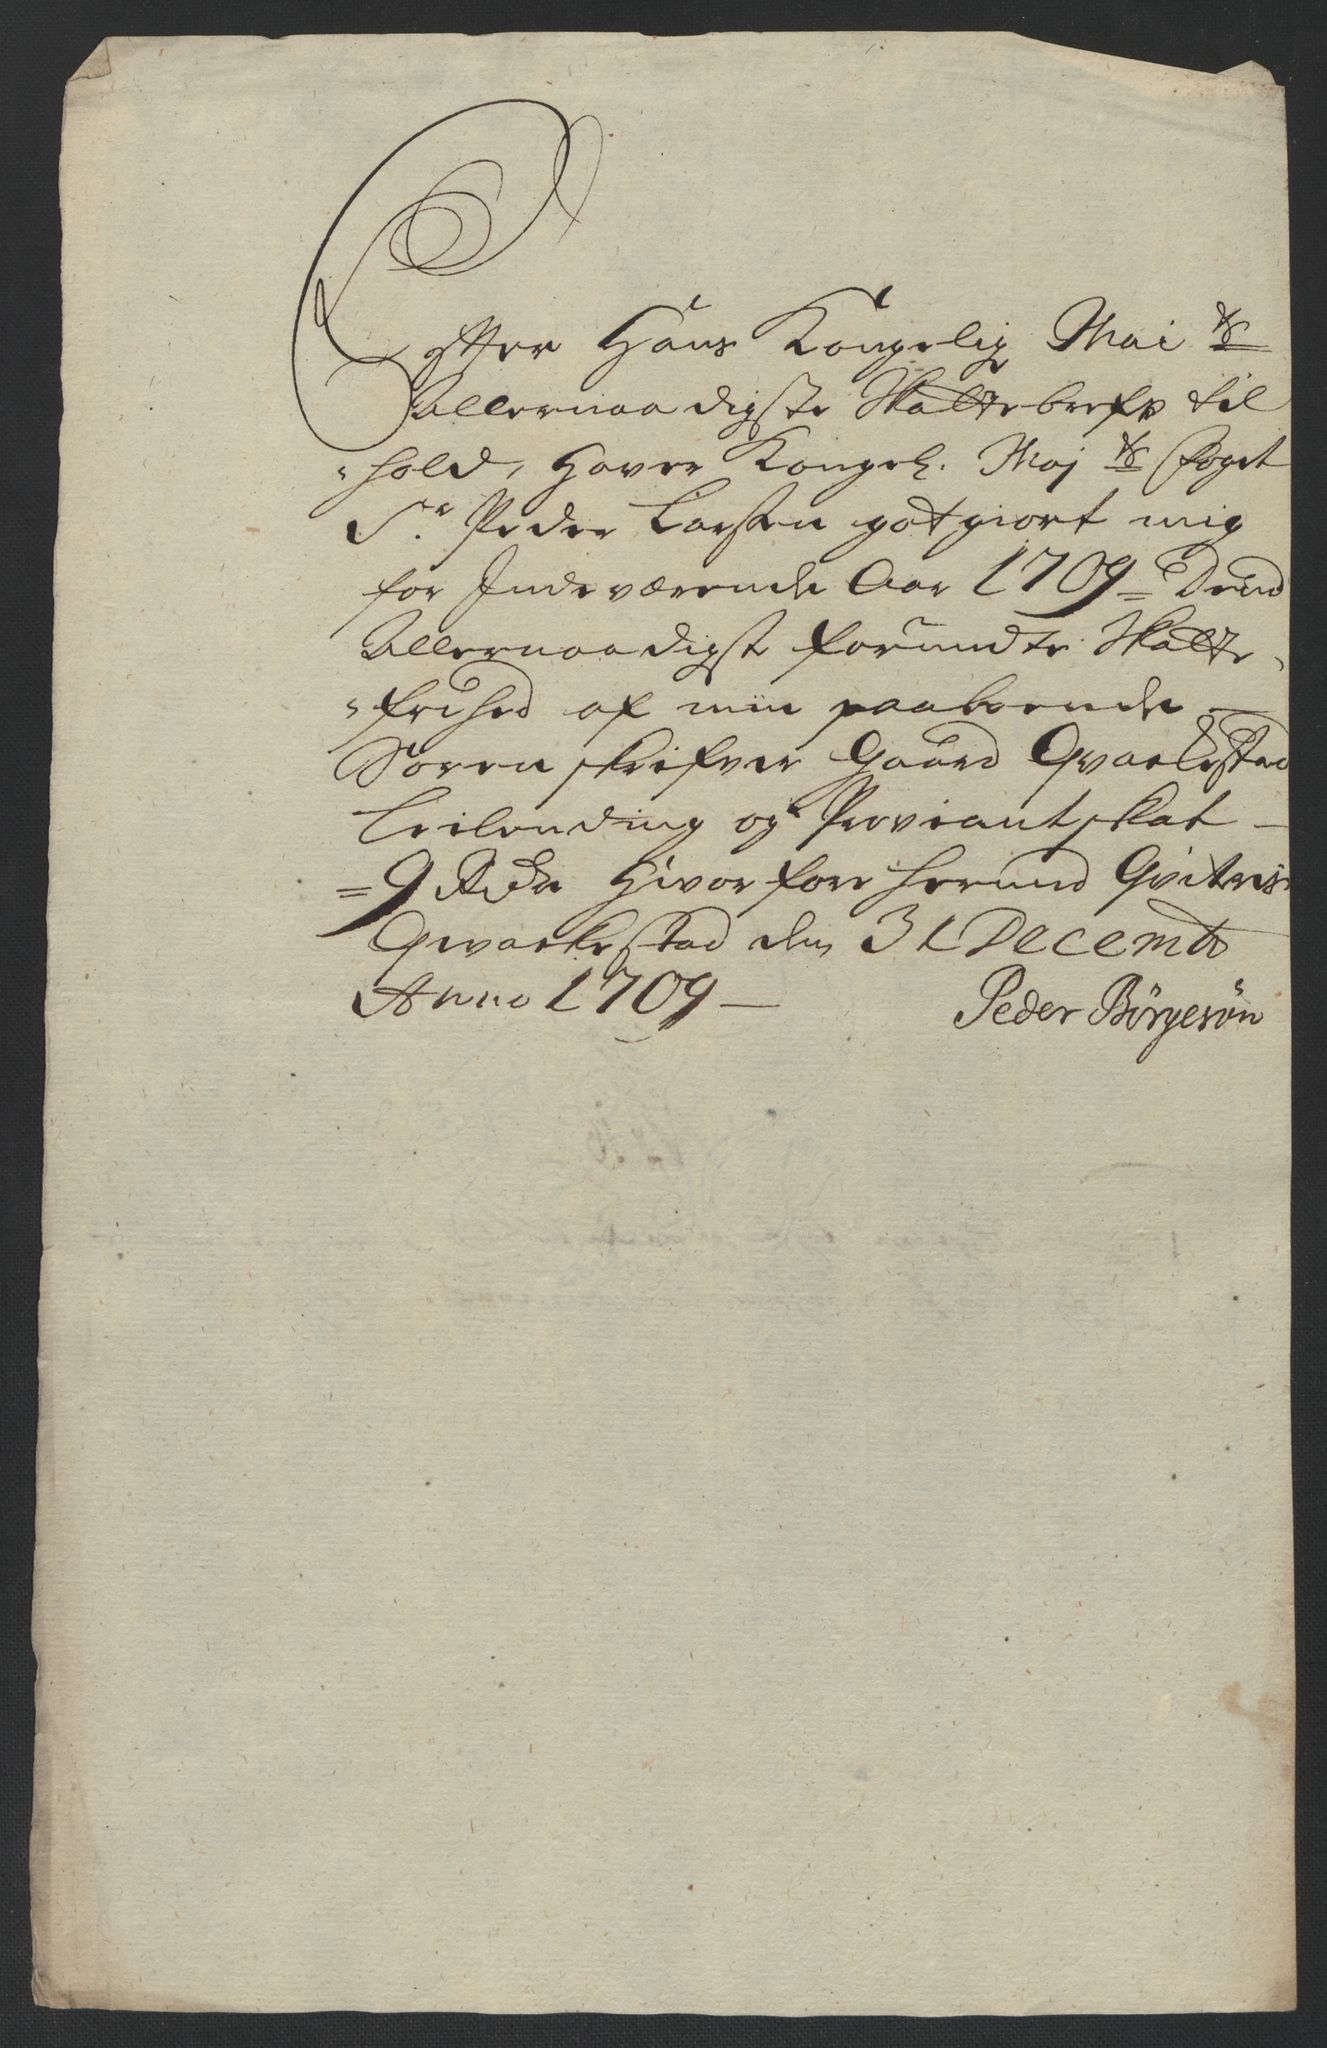 Efter Hans Kongelig Mai ts
Allernaadigste Skattebrefs til
=hold, Haver Kongel. Maj ts foget
Sr. Peder Larsen gotgiort mig
for Indeværende Aar 1709 = Dend
Allernaadigst forundte Skatte
=frihed af min paaboende
Sorenskrifver Gaard Qvaelestad
Leilending og Proviant skat
=9 Rdr Hvorfore herved Qviteris
Qvaelestad den 31 Decembr
Anno 1709 — Peder Börgesön